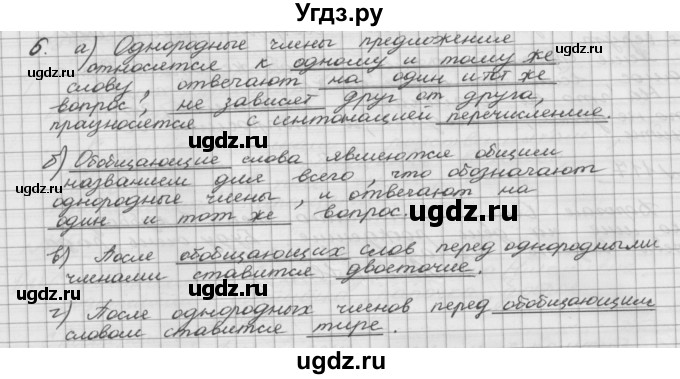 Угдз.ру
6. а) Однородные члены предложение
относятся к одному и тому же
слову, отвечают на один и тот же
вопрос, не зависят друг от друга,
празносятся с сентонацией перечисление.
ugdz.ru
ugdz.ru
ugdz.ru
б) Обобщающие слова являются общим
названием для всего, что обозначают
однородные члены, и отвечают на
один и тот же вопрос.
ugdz.ru
ugdz.ru
ugdz.ru
в) После обобщающих слов перед однородными
членами ставится двоеточие.
ugdz.ru
ugdz.ru
г) После однородных членов перед обобщающим
словом ставится тире.
ugdz.ru
ugdz.ru